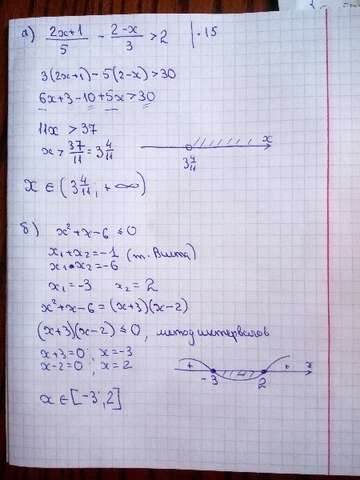 а) (2x+1)/5 - (2-x)/3 > 2 | ·15
3(2x+1)-5(2-x)>30
6x+3-10+5x>30
11x > 37
x > 37/11 = 3 4/11
3 4/11 x
x ∈ (3 4/11, +∞)
б) x²+x-6 ≤ 0
x₁+x₂=-1 (т. Виета)
x₁·x₂=-6
x₁=-3 x₂=2
x²+x-6=(x+3)(x-2)
(x+3)(x-2) ≤ 0, метод интервалов
x+3=0, x=-3
x-2=0, x=2
+ - + x
-3 2
x ∈ [-3; 2]